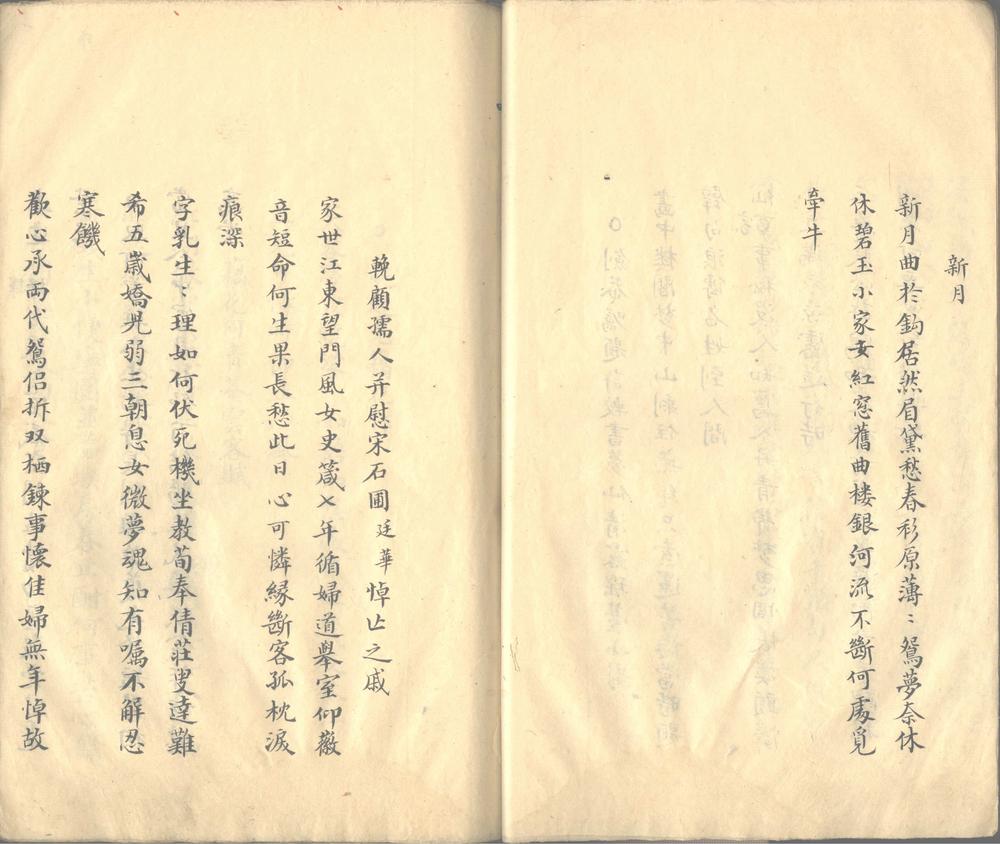 新月
新月曲扵鈎居然眉黛愁春衫原薄〻鴛夢奈休
休碧玉小家女紅窓舊曲楼銀河流不斷何處覓
牽牛
輓顧孺人并慰宋石圃廷華悼亡之戚
家世江東望門風女史箴七年循婦道舉室仰徽
音短命何生果長愁此日心可憐緣斷客孤枕淚
痕深
字乳生〻理如何伏死機坐教荀奉倩莊叟達難
希五歲嬌兒弱三朝息女微夢魂知有囑不解忍
寒饑
歡心承兩代鴛侶拆双栖鍊事懷佳婦無年悼故